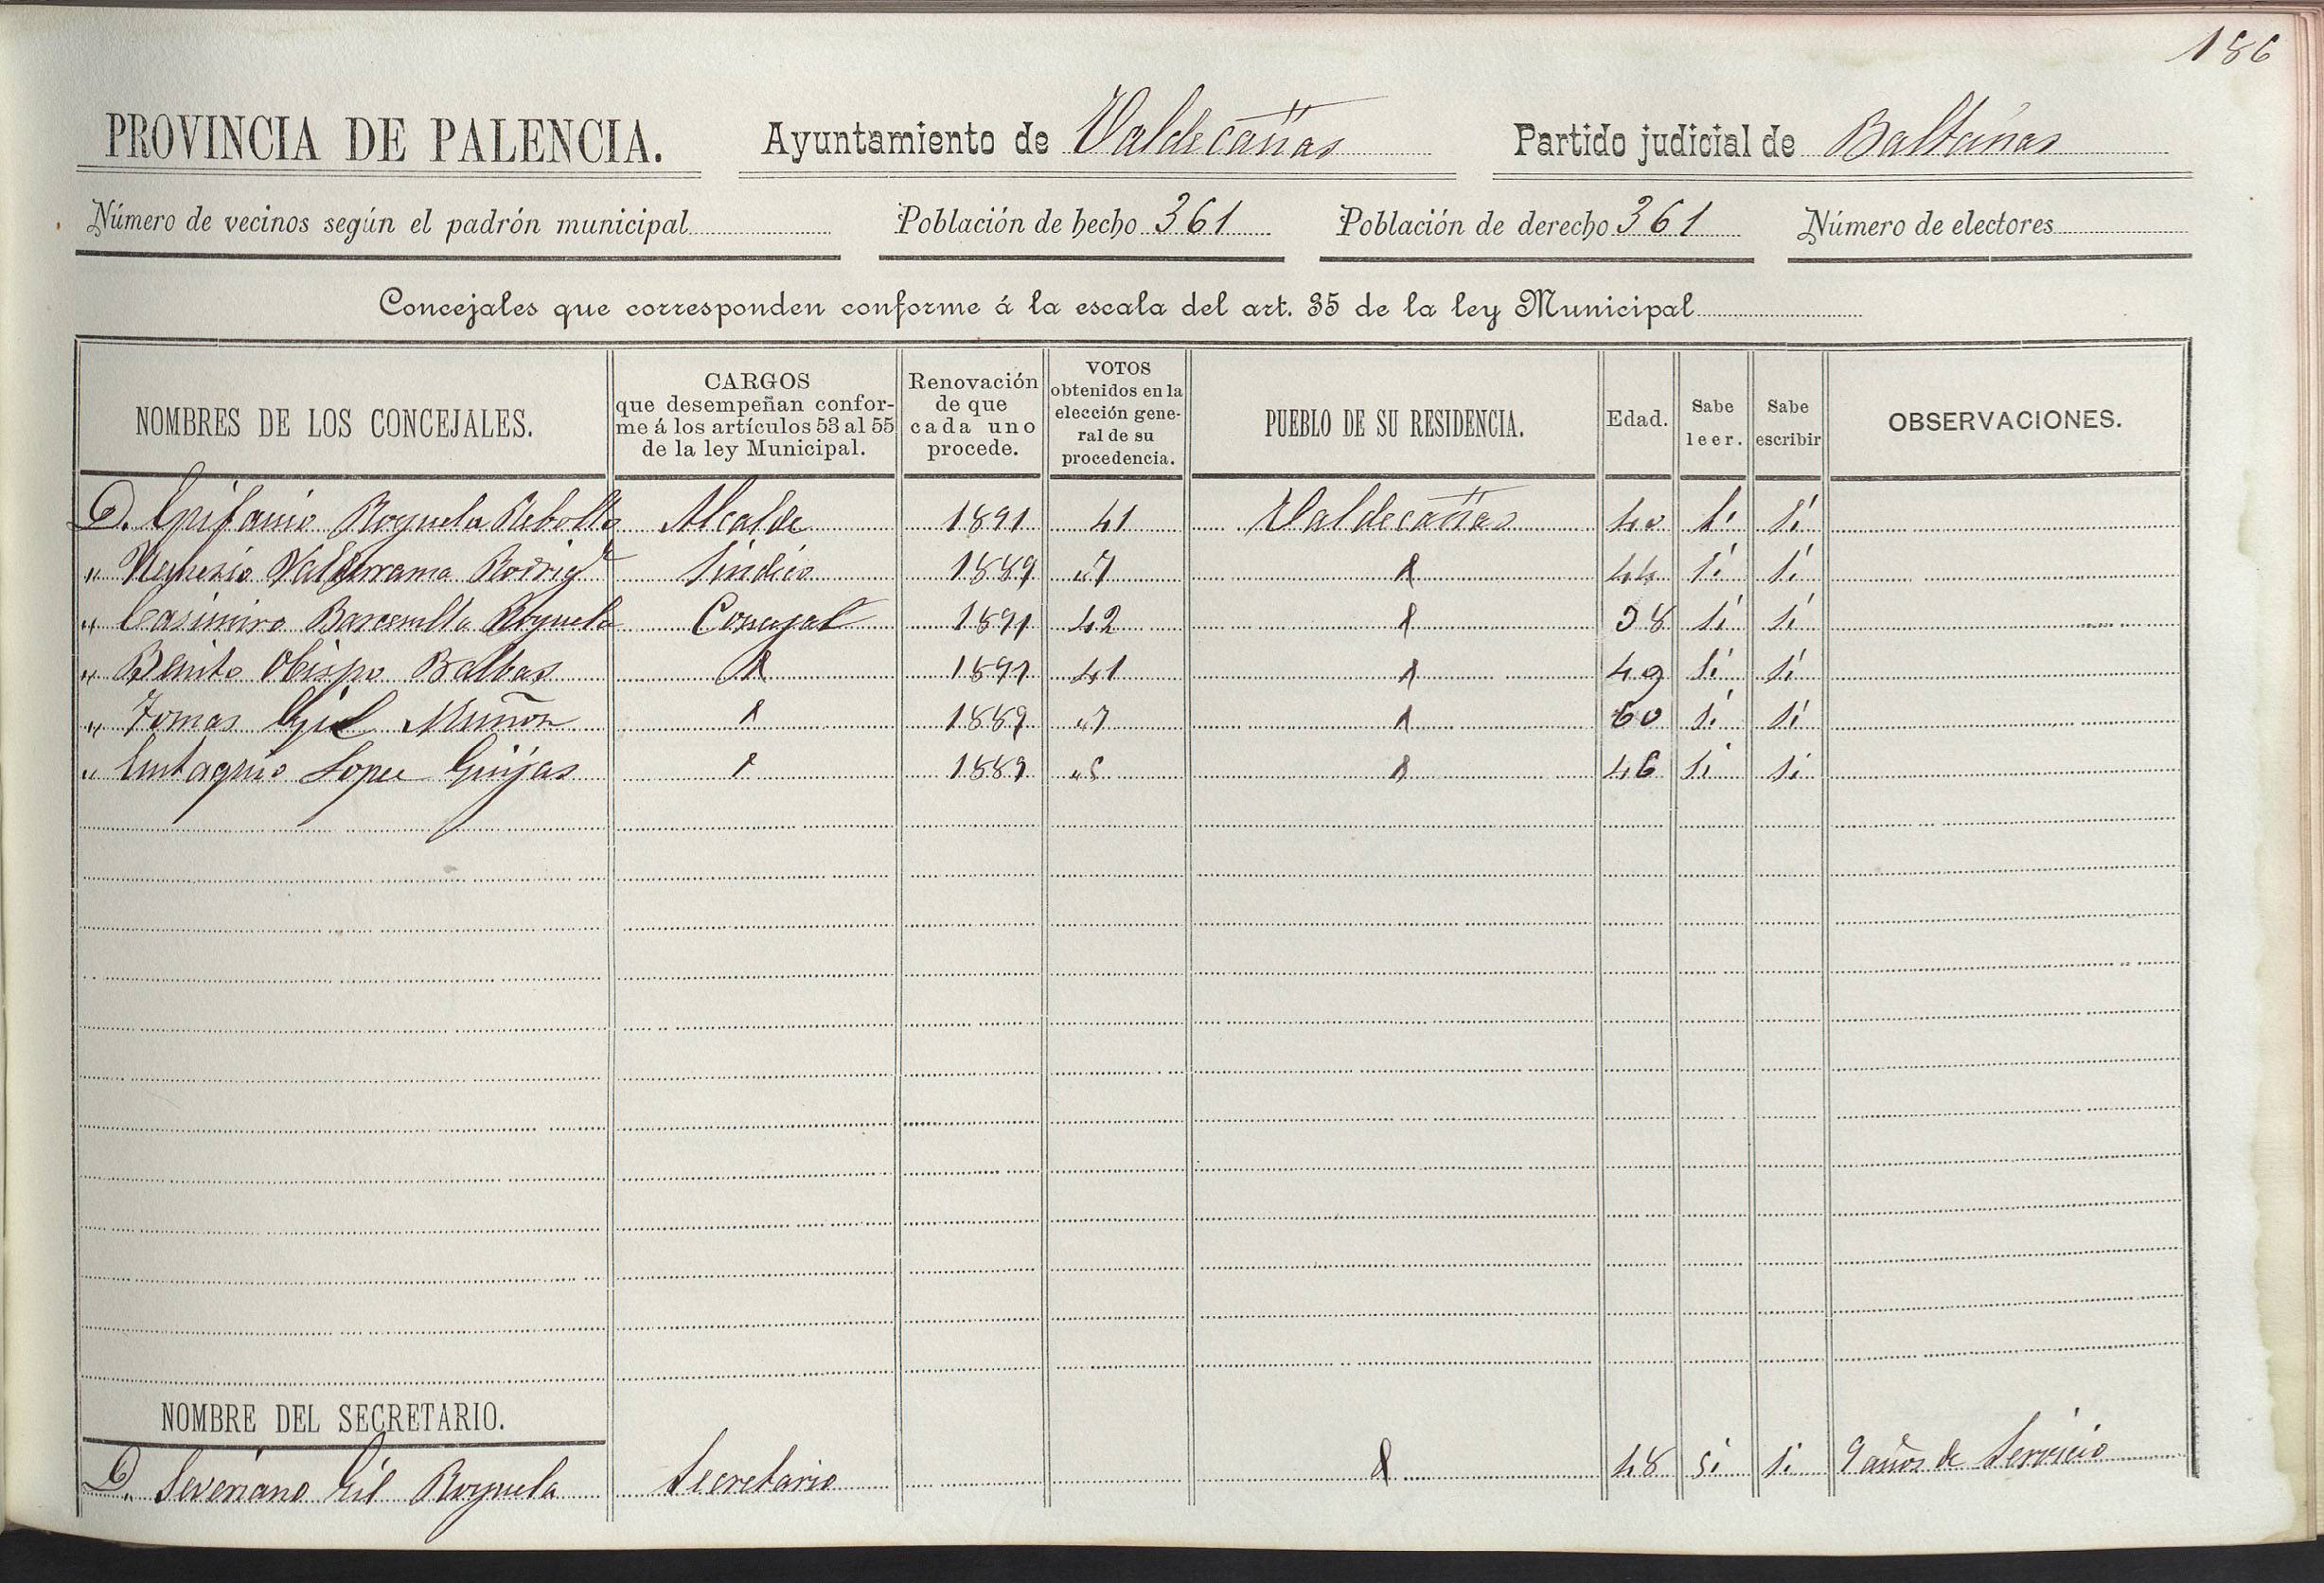 186
PROVINCIA DE PALENCIA. Ayuntamiento de Valdecañas Partido judicial de Baltanas
Número de vecinos según el padrón municipal Población de hecho 361 Población de derecho 361 Número de electores
Concejales que corresponden conforme á la escala del art. 35 de la ley Municipal
NOMBRES DE LOS CONCEJALES.
CARGOS
que desempeñan confor-
me á los artículos 53 al 55
de la ley Municipal.
Renovación
de que
cada uno
procede.
VOTOS
obtenidos en la
elección gene-
ral de su
procedencia.
PUEBLO DE SU RESIDENCIA.
Edad.
Sabe
leer.
Sabe
escribir
OBSERVACIONES.
D. Epifanio Royuela Rebollo Alcalde 1891 41 Valdecañas 40 Si Si
" Valderrama Rodrigz Sindico 1889 "7 44 Si Si
" Casimiro Barcenilla Royuela Concejal 1891 42 38 Si Si
" Benito Obispo Balbas 1891 41 49 Si Si
" Tomas Gil Muñoz 1889 "7 60 Si Si
" Eustaquio Lopez Guijas 1889 46 Si Si
NOMBRE DEL SECRETARIO.
D. Severiano Gil Royuela Secretario 48 Si Si 9 años de Servicio